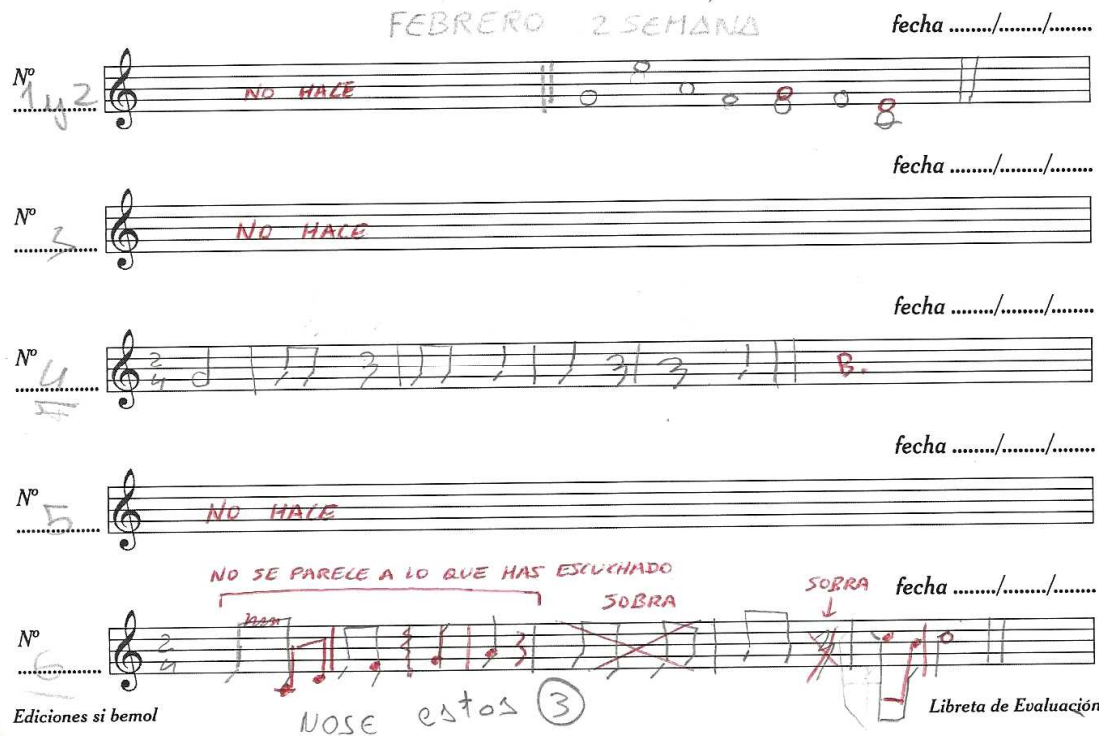 FEBRERO 2 SEMANA
fecha ......../......../........
Nº
1 y 2
NO HACE
fecha ......../......../........
Nº
3
NO HACE
fecha ......../......../........
Nº
4
2
4
B.
fecha ......../......../........
Nº
5
NO HACE
NO SE PARECE A LO QUE HAS ESCUCHADO
SOBRA
SOBRA
fecha ......../......../........
Nº
6
2
4
NOSE estos 3
Ediciones si bemol
Libreta de Evaluación